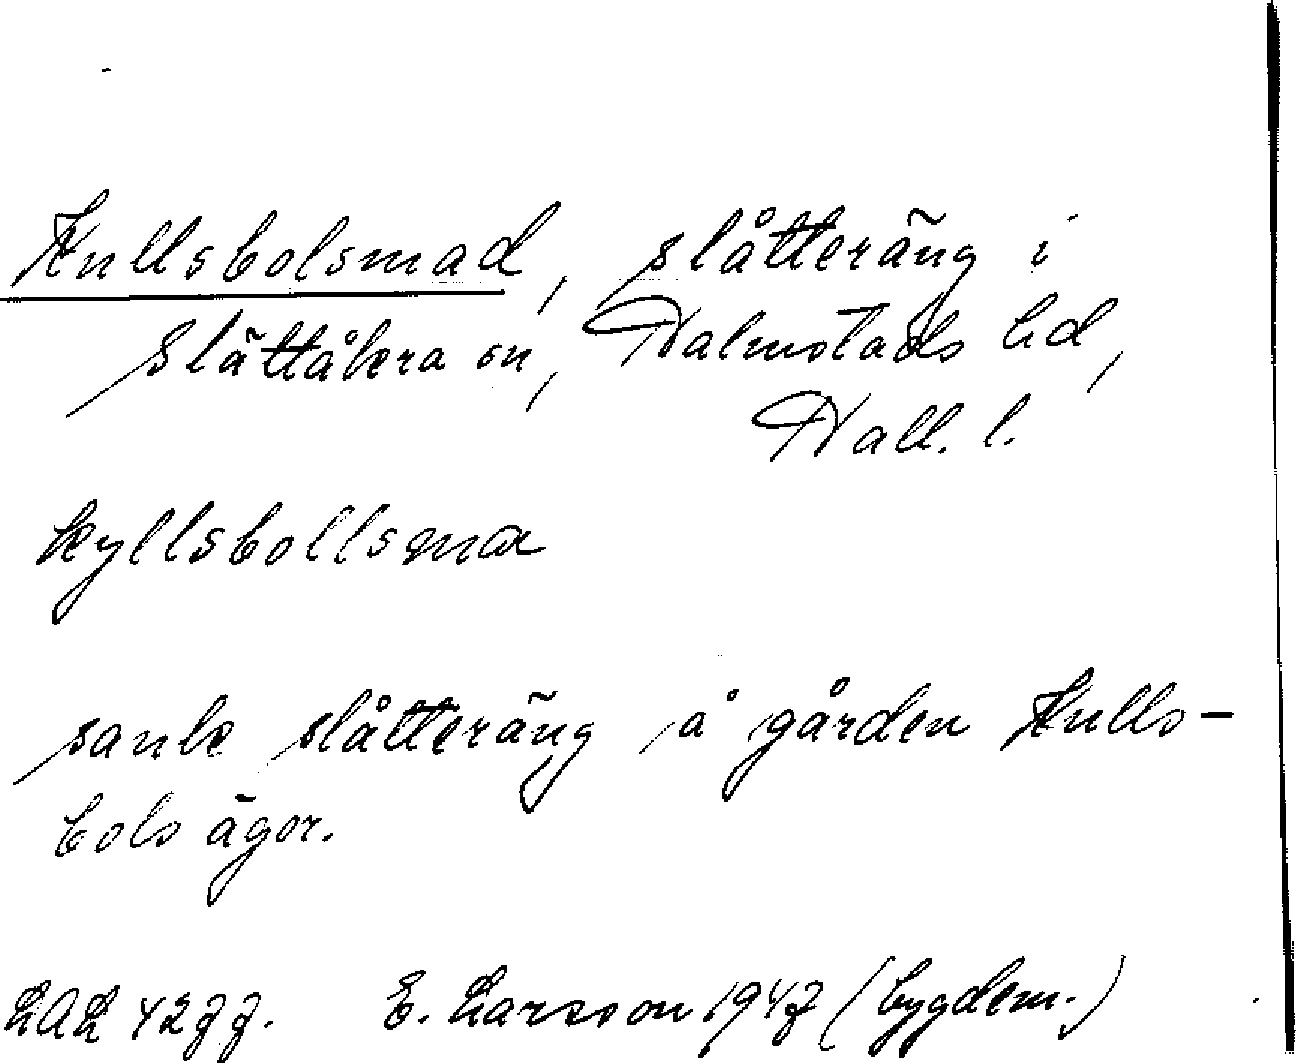 Kullsbolsmad, slåtteräng i
Slättåkra sn, Halmstads hd,
Hall. l.
kyllsbollsma
sank slåtteräng å gården Kulls-
bols ägor.
LAL 4277. E. Larsson 1947 (bygdem.)